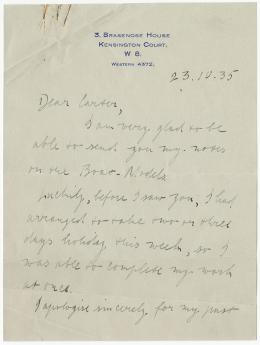 3, BRASENOSE HOUSE
KENSINGTON COURT,
W 8.
WESTERN 4372.
23.10.35
Dear Carter,
I am very glad to be
able to send you my notes
on the Boat-Models
luckily, before I saw you, I had
arranged to take two or three
days holiday this week, so I
was able to complete my work
at once.
I apologise sincerely for my past